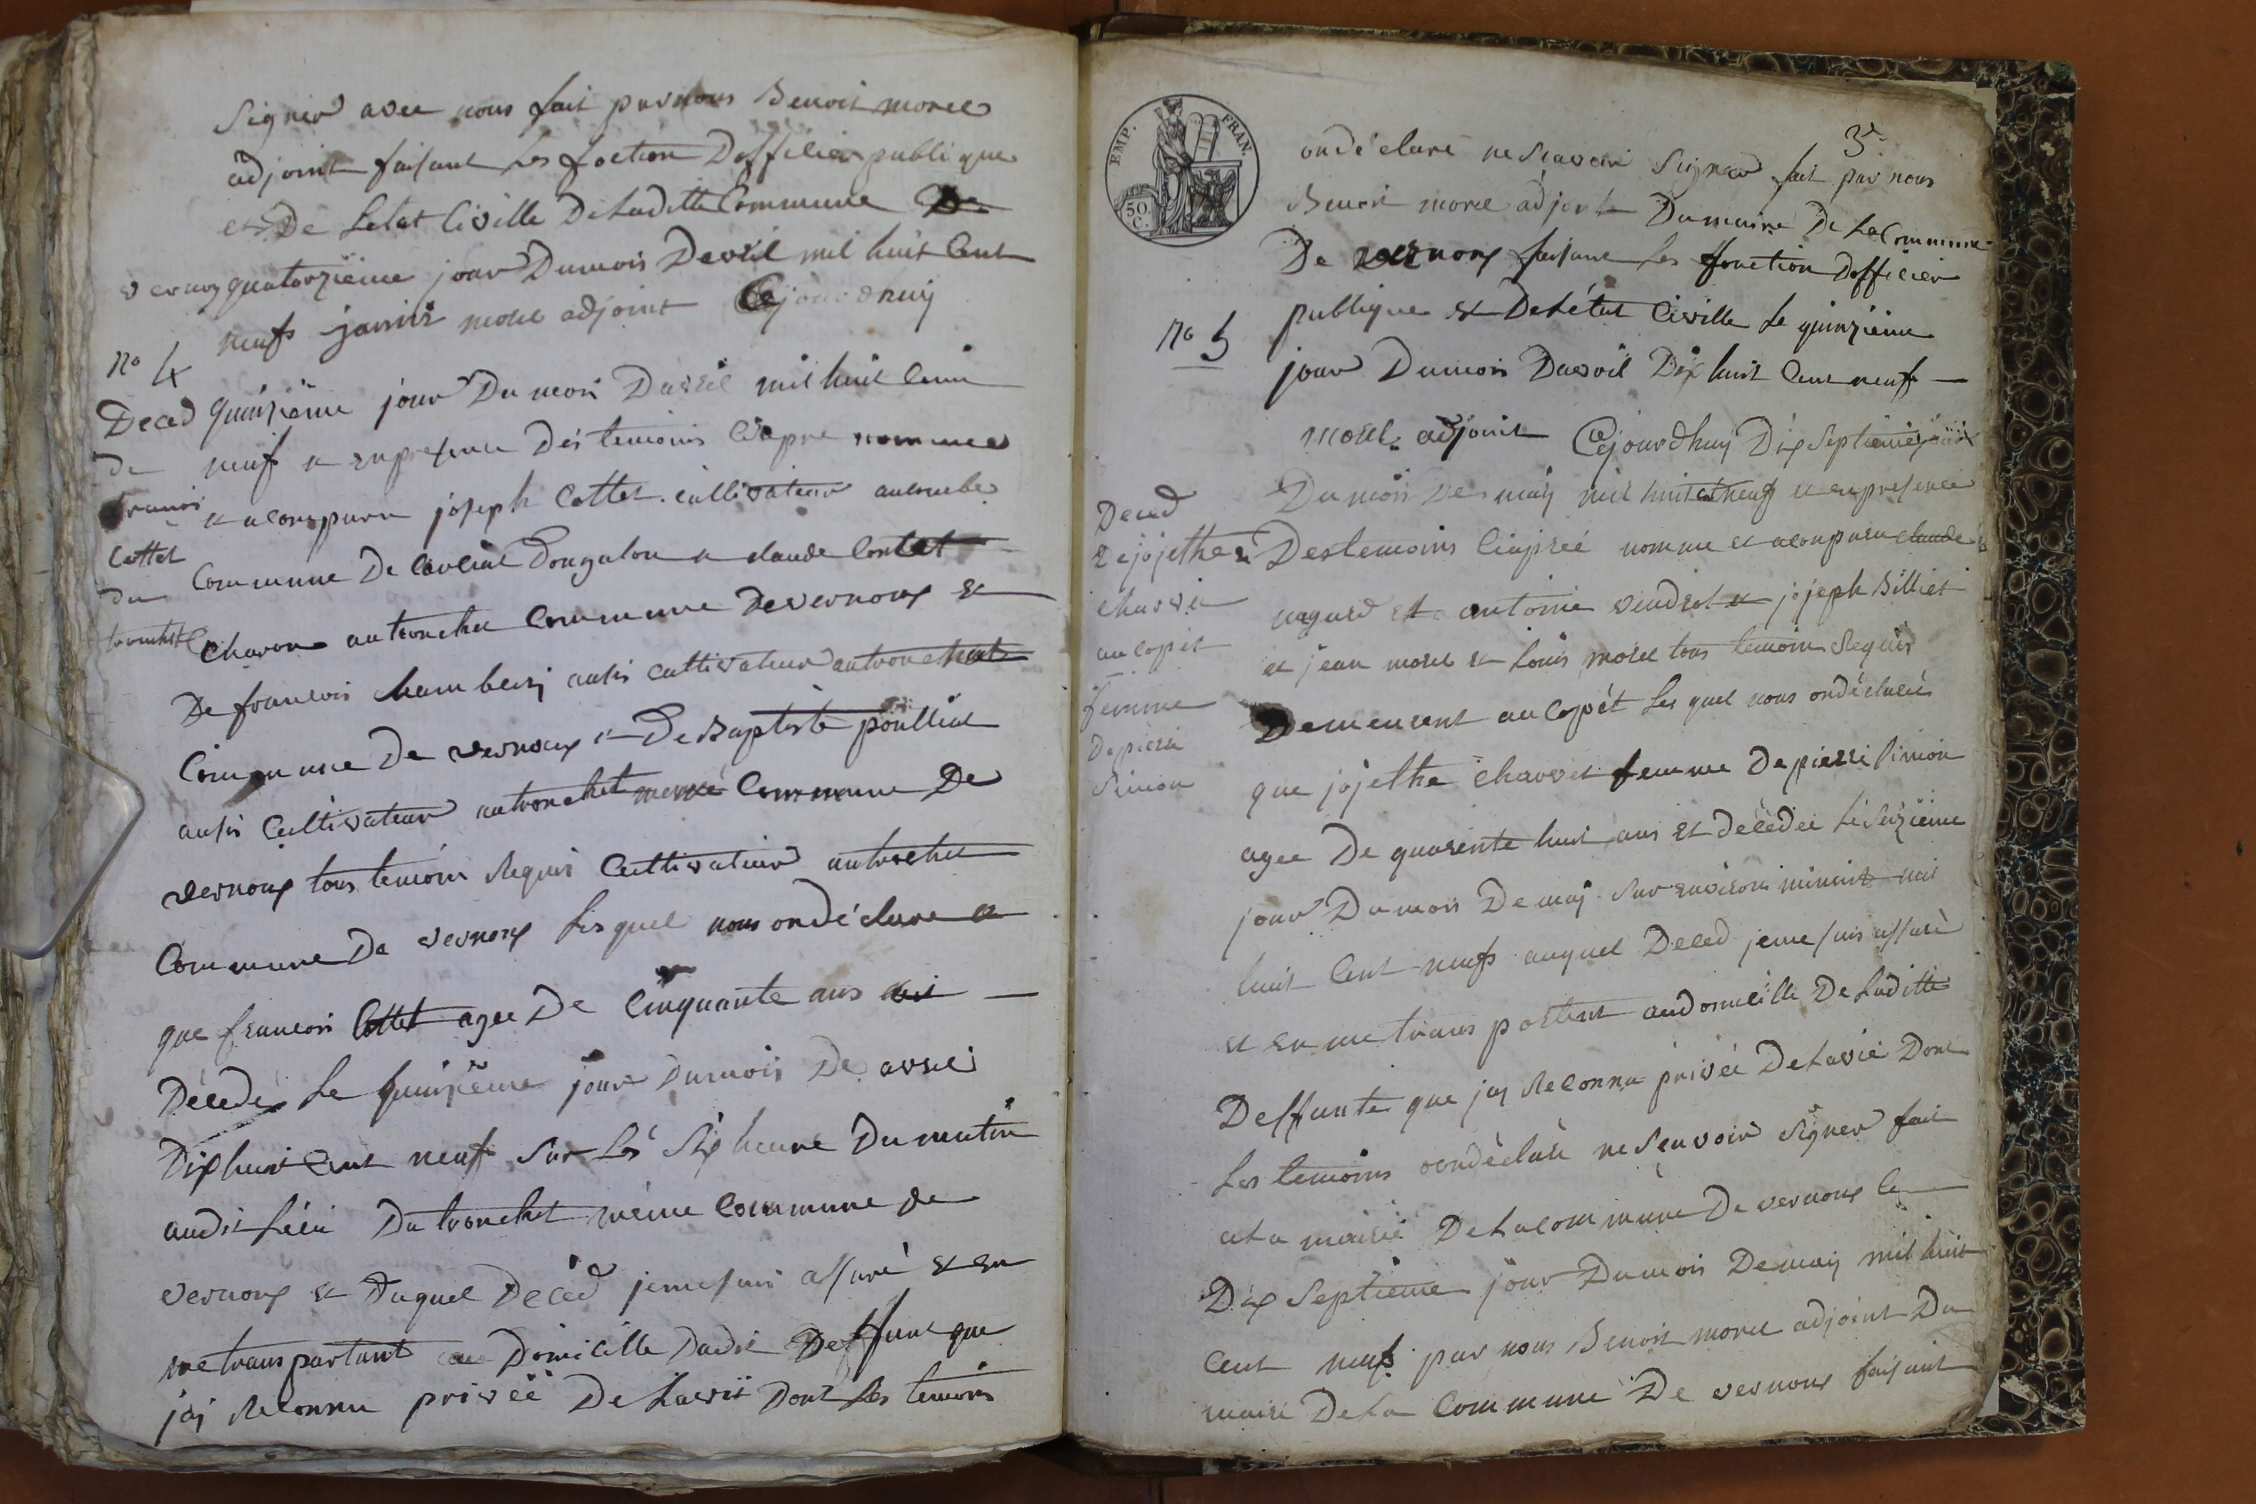 Signer avec nous fait par nous Benoit morel
adjoint faisant les foction Dofficier publique
et De Letat Civille De Laditte Commune De
vernoy quatorzième jour Du mois Davril mil huit Cent
neufs morel adjoint Cejourdhuij
n° 4
Deced
de
francoi
Cottet
du
tronchet
quinzième jour Du mois Davril mil huit Cent
neuf et en presence Des temoins Ciapre nommee
et a Comparu joseph Cottet cultivateur
Commune De Dongalon et claude Contet
Charon au tronchet Commune De vernoux et
De francois Chamberj ausis cultivateur au tronchet
Commune De vernoux et De Baptiste poulliat
ausis Cultivateur au tronchet meme Commune De
vernoux tous temoins Requis Cultivateur au tronchet
Commune De vernoux lesquel nous ondéclare
que francois Cottet agee De Cinquante ans
Décedés Le quinzième jour Du mois De avril
Dixhuit Cent neuf Sur Les Six heure Du matin
audit Léeu Du tronchet même Commune de
vernoux et Duquel Deced jemesuis assuré et en
me transportant au Domicille Dudit Deffunt que
jaj Reconnu privéé De Lavie Dont Les temoins
EMP. FRAN.
50 C.
3
ondéclaré ne Scavoire Signer fait par nous
Benoit morel adjoint Du maire De La Commune
De vernoux faisant Les fonction Dofficier
publique et De Létat Civille Le quinzième
n° 5
jour Dumois Davril Dix huit Cent neufs
morel adjoint Cejourdhuij Dix Septieme jour
Deced
De jojethe
Chavvet
au Copét
femme
De pierre
Simion
Du mois De maij mil huit Cent neufs et en presence
Des temoins Ciaprée nomme et a Comparu claude
et antoine vendret et jojeph Billiet
et jean morel et Louis morel tous temoins Requis
Demeurent au Copét Les quel nous ondéclaré
que jojethe Chavvet femme De pierre Simion
agee De quarente huit ans et Décedée Le Seizième
jour Du mois De maj Sur environ minuit mil
huit Cent neufs auquel Deced jeme suis assuré
et en me transportent audomicille De Laditte
Deffunte que jaj Reconnu privée De Lavie Dont
Les temoins ondéclaré ne Scavoir Signer fait
a La mairie De La Commune De vernoux Ce
Dix Septieme jour Du mois De maij mil huit
Cent neufs par nous Benoit morel adjoint Du
maire De La Commune De vernoux faisant